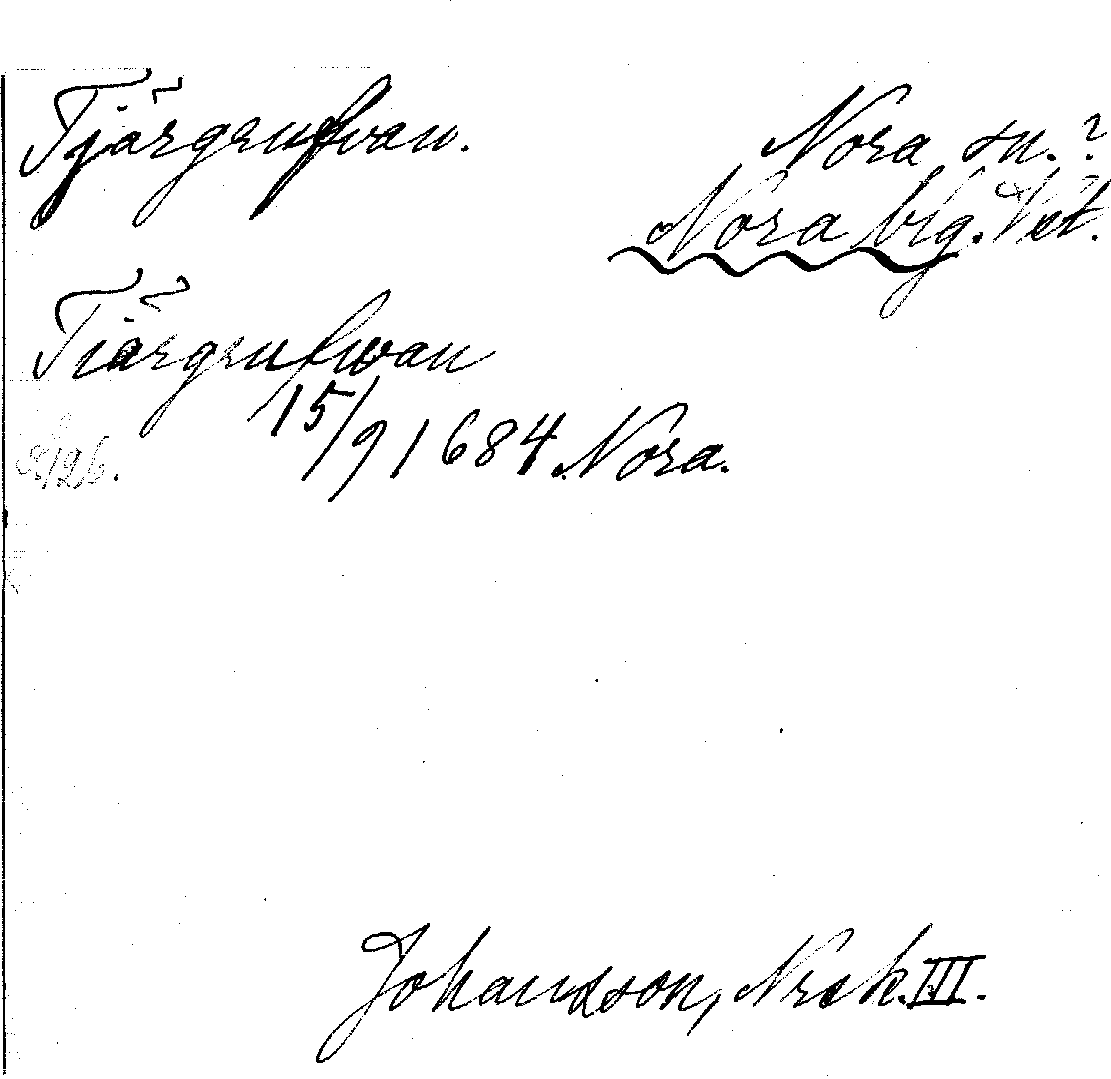 Tjärgrufwan.
Nora sn.?
Nora bg. Vst.
Tiärgrufwan
15/9 1684 Nora.
Johansson, Nrsk. III.